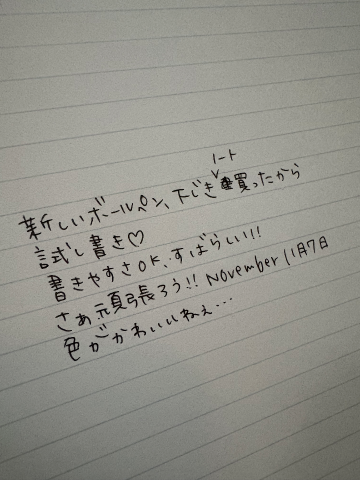 新しいボールペン、下じき ノート 買ったから
試し書き♡
書きやすさOK、すばらしい!!
さぁ頑張ろう!! November 11月7日
色がかわいいねぇ…